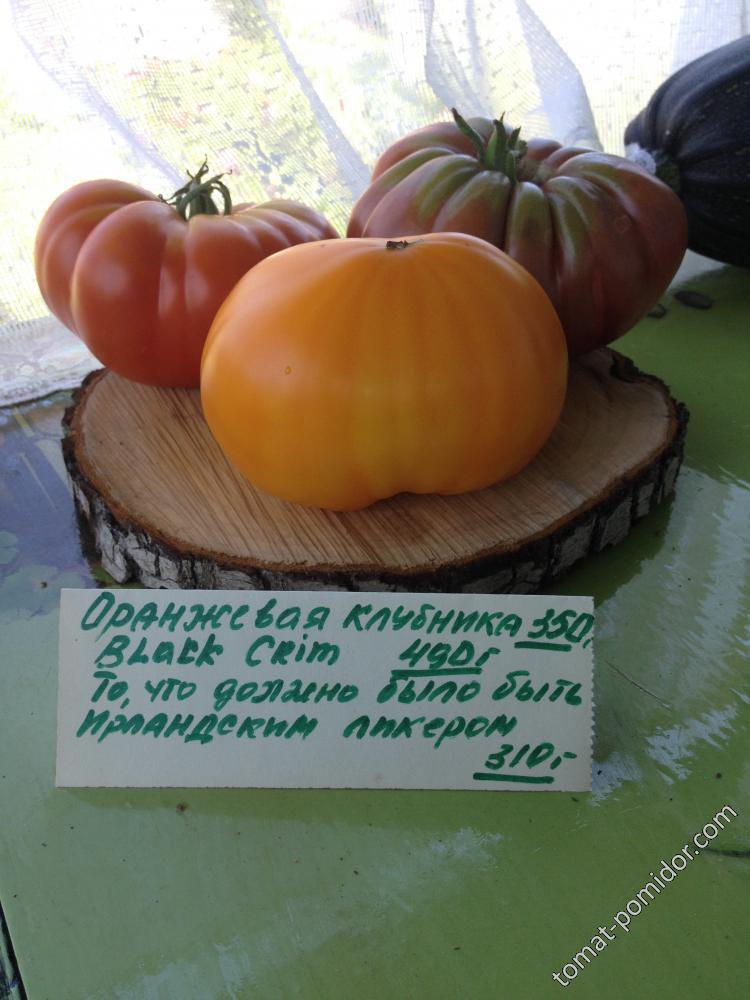 Оранжевая клубника 350г
Black Crim 490г
То, что должно было быть
Ирландским ликером
310г
tomat-pomidor.com